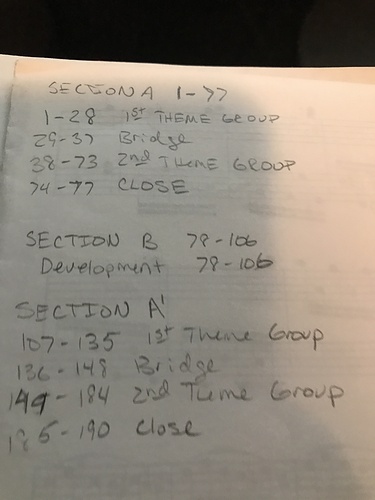 SECTION A 1-77
1-28 1st THEME GROUP
29-37 Bridge
38-73 2nd THEME GROUP
74-77 CLOSE
SECTION B 78-106
Development 78-106
SECTION A'
107-135 1st Theme Group
136-148 Bridge
149-184 2nd Theme Group
185-190 Close